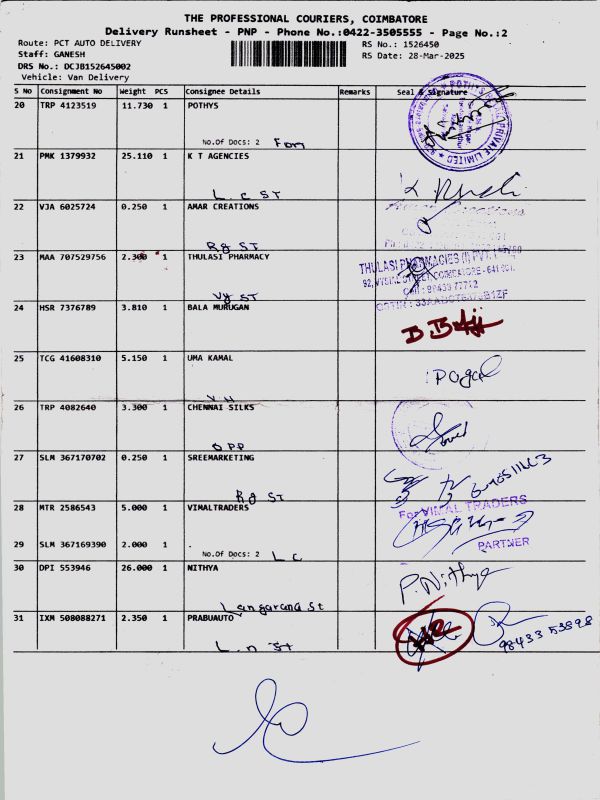 THE PROFESSIONAL COURIERS, COIMBATORE
Delivery Runsheet - PNP - Phone No.:0422-3505555 - Page No.:2
Route: PCT AUTO DELIVERY
RS No.: 1526450
Staff: GANESH
RS Date: 28-Mar-2025
DRS No.: DCJB152645002
Vehicle: Van Delivery
S NO Consignment No Weight PCS Consignee Details Remarks Seal & Signature
20 TRP 4123519 11.730 1 POTHYS
No.Of Docs: 2
PRIVATE LIMITED
21 PMK 1379932 25.110 1 K T AGENCIES
L. C ST
22 VJA 6025724 0.250 1 AMAR CREATIONS
Rg ST
23 MAA 707529756 2.300 1 THULASI PHARMACY
THULASI PHARMACIES
Vy ST
24 HSR 7376789 3.810 1 BALA MURUGAN
25 TCG 41608310 5.150 1 UMA KAMAL
26 TRP 4082640 3.300 1 CHENNAI SILKS
OPP
27 SLM 367170702 0.250 1 SREEMARKETING
Rg ST
28 MTR 2586543 5.000 1 VIMALTRADERS
For VIMAL TRADERS
PARTNER
29 SLM 367169390 2.000 1
No.Of Docs: 2 L C
30 DPI 553946 26.000 1 NITHYA
P. Nithya
31 IXM 508088271 2.350 1 PRABUAUTO
98433 53898
L. n ST